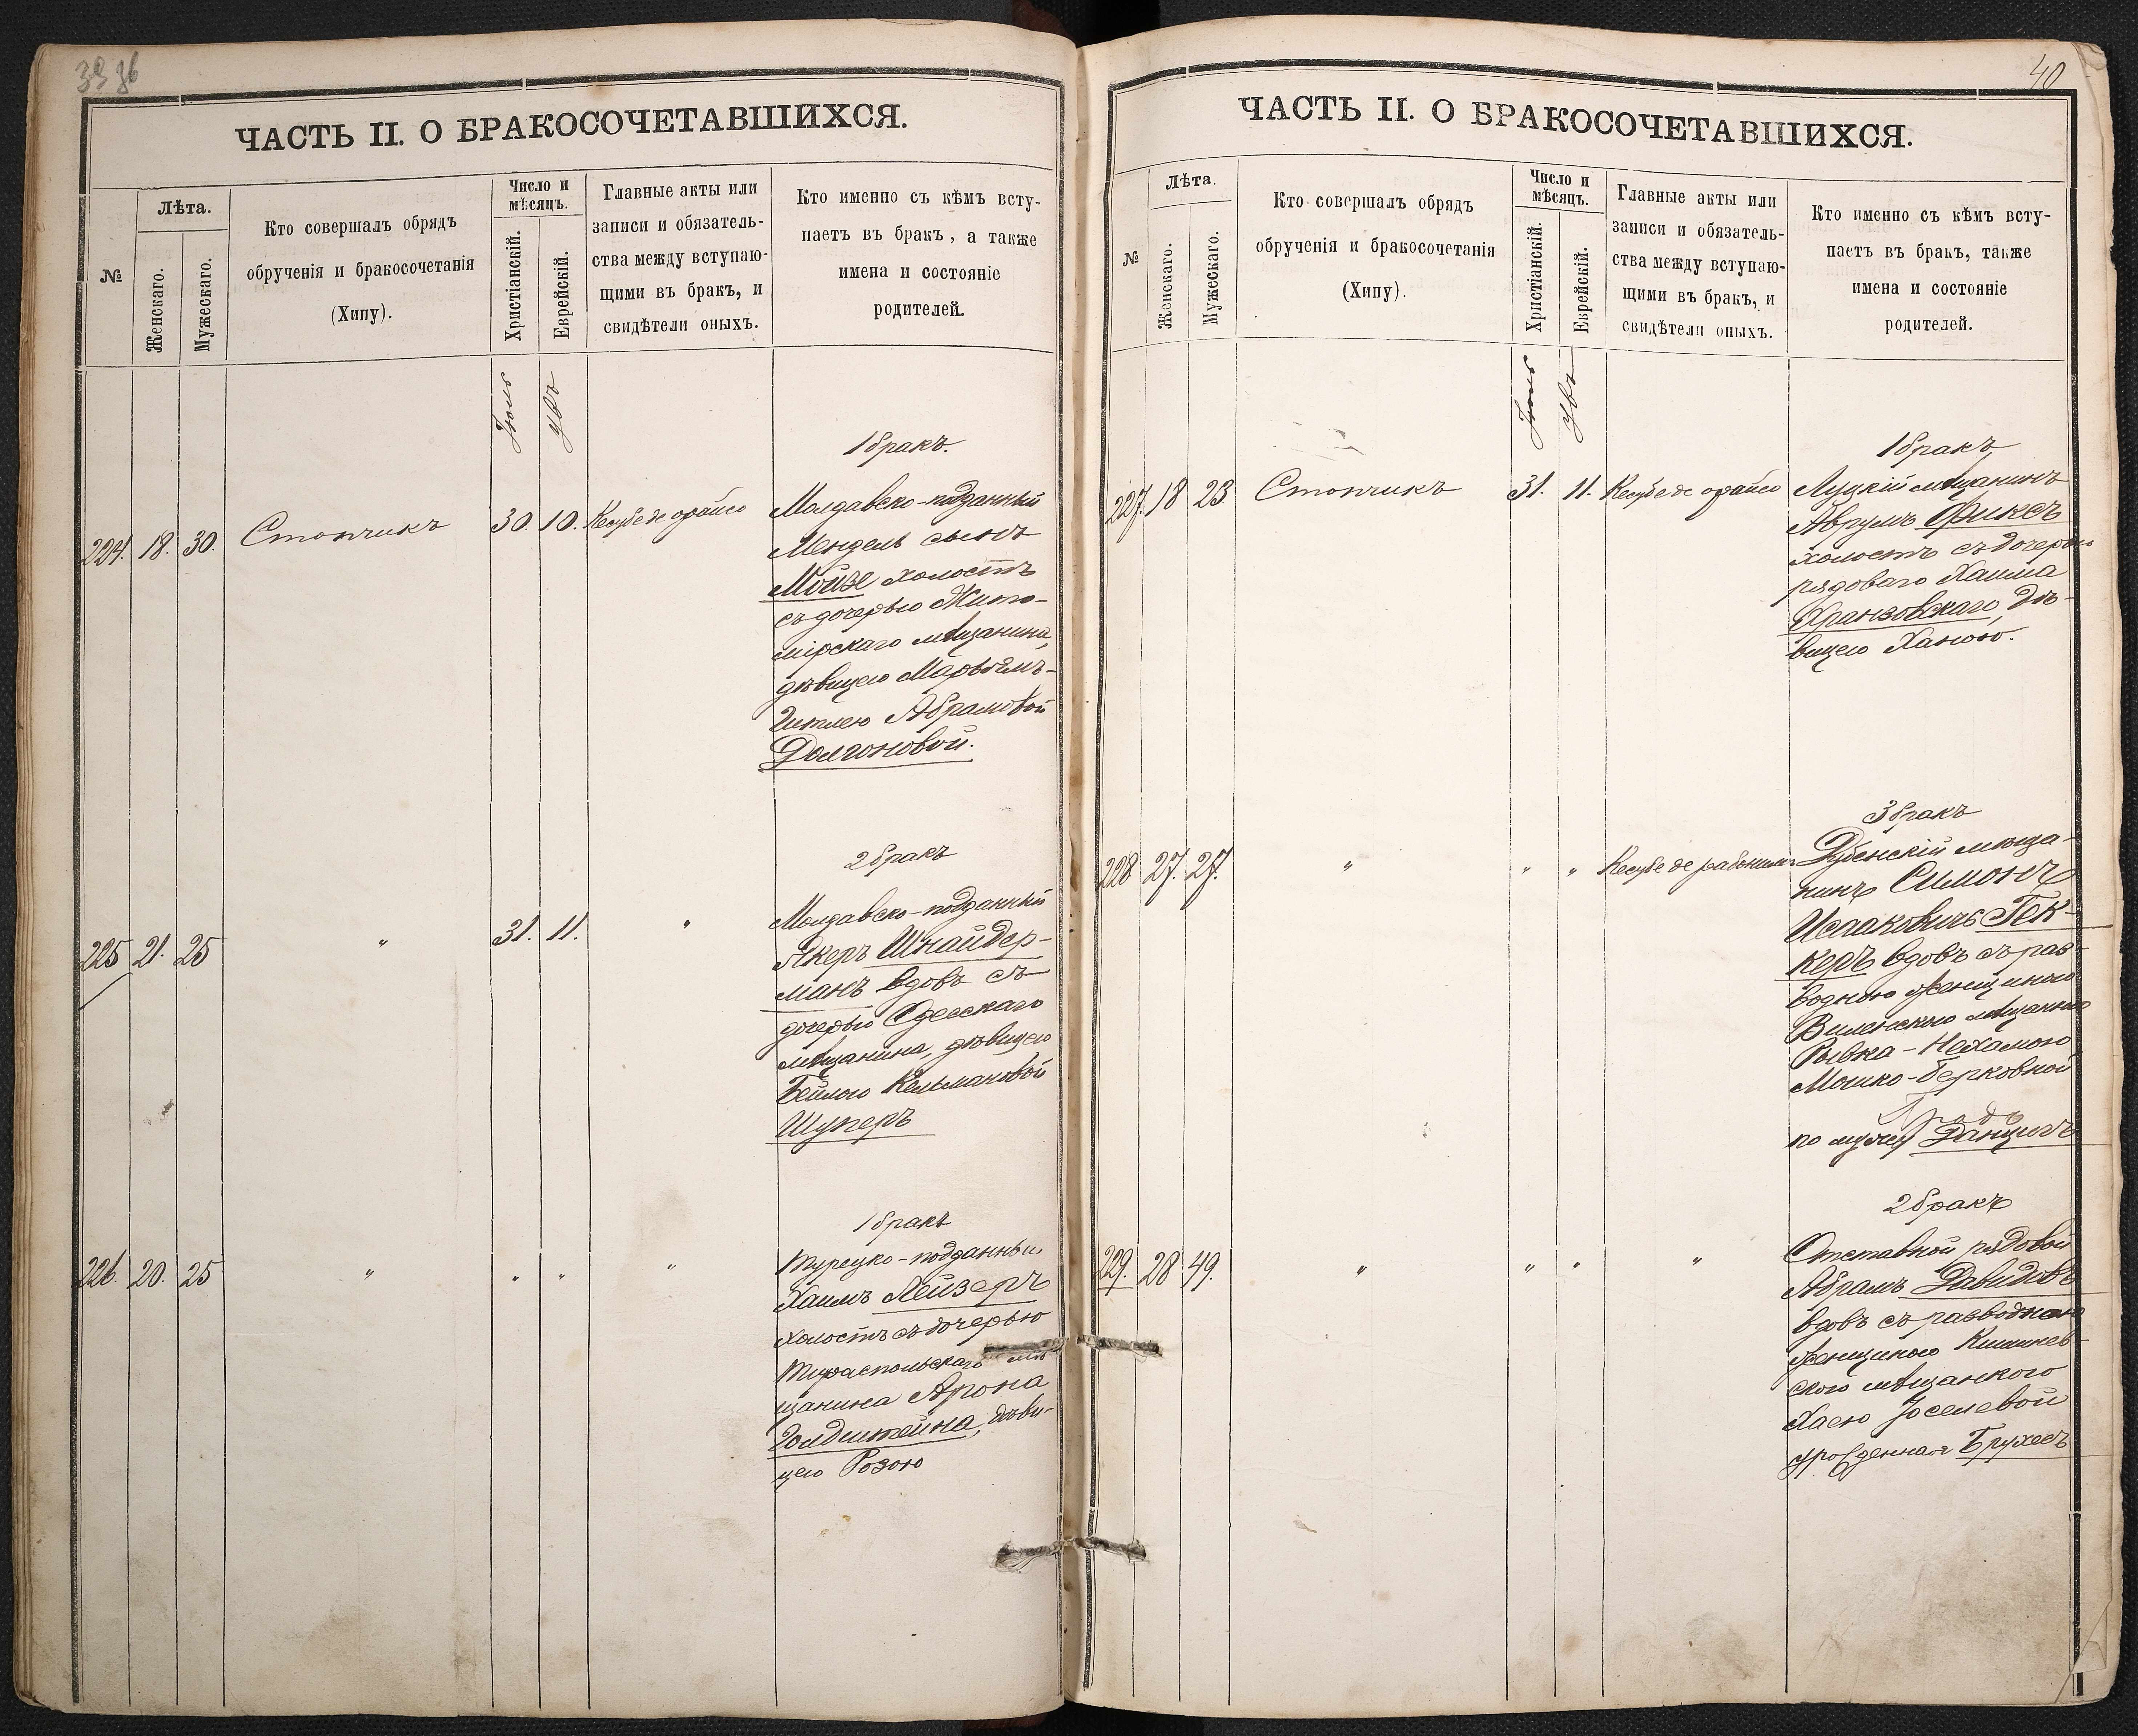 39 36
ЧАСТЬ II. О БРАКОСОЧЕТАВШИХСЯ.
№
Лѣта.
Женскаго.
Мужескаго.
Кто совершалъ обрядъ
обрученія и бракосочетанія
(Хипу).
Число и
мѣсяцъ.
Христіанскій.
Еврейскій.
Главные акты или
записи и обязатель-
ства между вступаю-
щими въ бракъ, и
свидѣтели оныхъ.
Кто именно съ кѣмъ всту-
паетъ въ бракъ, а также
имена и состояніе
родителей.
Іюль
Увъ
1 бракъ.
224. 18. 30. Стопчикъ 30. 10. Кесубе де орайсо
Молдавско-подданный
Мендель сынъ
Мойзе холостъ
съ дочерью Жито-
мірскаго мѣщанина,
дѣвицею Марьямъ-
Гитлею Абрамовой
Долгоновой.
2 бракъ
225 21. 25 " 31. 11. "
Молдавско-подданный
Якеръ Шнайдер-
манъ вдовъ съ
дочерью Одесскаго
мѣщанина, дѣвицею
Бейлою Кельмановой
Шуперъ
1 бракъ
226. 20. 25 " " " "
Турецко-подданный
Хаимъ Лейзеръ
холостъ съ дочерью
Тираспольскаго мѣ
щанина Арона
Голдштейна, дѣви-
цею Розою
40
ЧАСТЬ II. О БРАКОСОЧЕТАВШИХСЯ.
№
Лѣта.
Женскаго.
Мужескаго.
Кто совершалъ обрядъ
обрученія и бракосочетанія
(Хипу).
Число и
мѣсяцъ.
Христіанскій.
Еврейскій.
Главные акты или
записи и обязатель-
ства между вступаю-
щими въ бракъ, и
свидѣтели оныхъ.
Кто именно съ кѣмъ всту-
паетъ въ бракъ, также
имена и состояніе
родителей.
Іюль
Увъ
1 бракъ
227. 18 23 Стопчикъ 31. 11. Кесубе де орайсо
Луцкій мѣщанинъ
Аврумъ Фиксъ
холостъ съ дочерью
рядоваго Хаима
Хранзовскаго, дѣ-
вицею Ханою.
3 бракъ
228 27. 27. " " " Кесубе де рабонимъ
Дубенскій мѣща-
нинъ Симонъ
Исааковичъ Гек-
керъ вдовъ съ раз-
водною женщиною
Виленскою мѣщанкою
Рывка-Нехамою
Мошко-Берковной
по мужу Данцигъ
2 бракъ
229. 28 49. " " " "
Отставной рядовой
Абрамъ Давидовъ
вдовъ съ разводною
женщиною Кишинев-
ского мѣщанкою
Хаею Іоселевой
урожденная Брухесъ